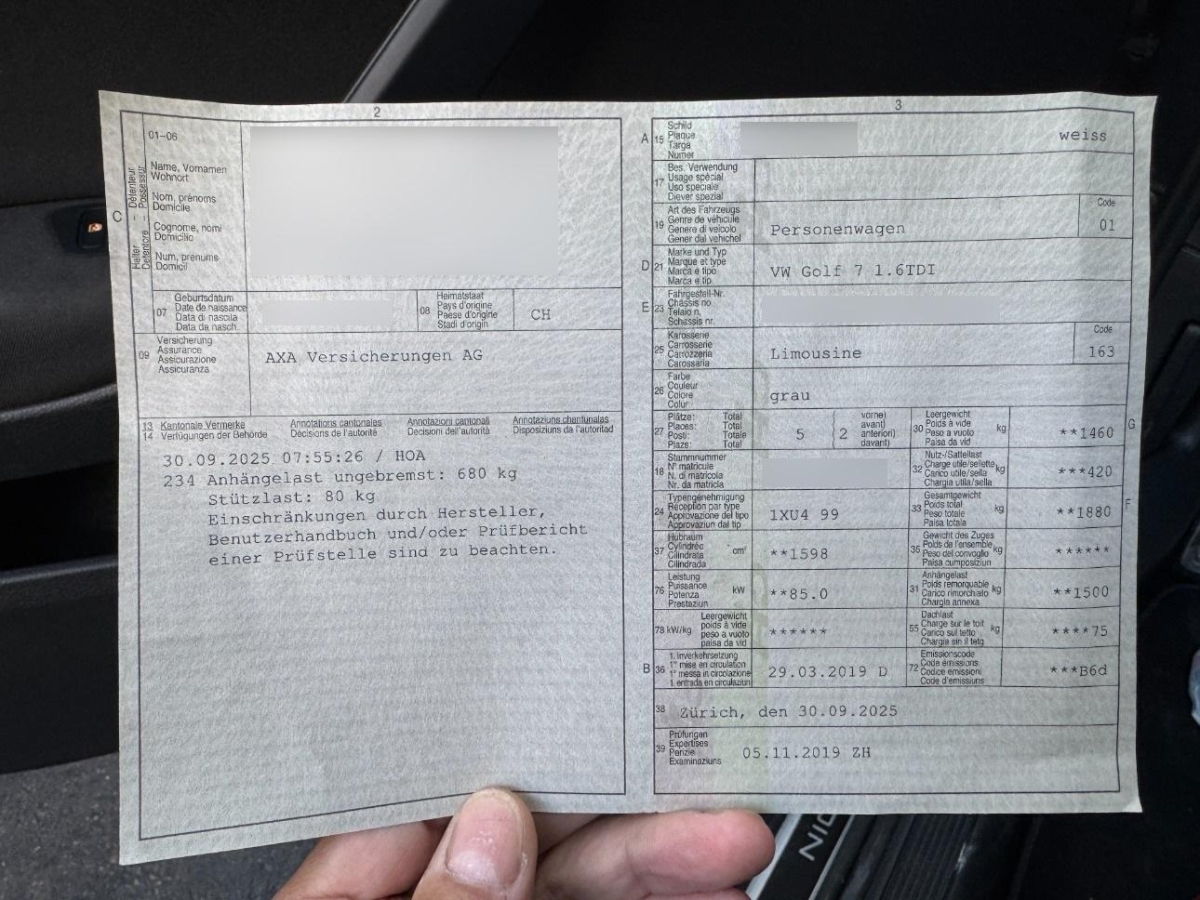 2
01-06
Name, Vornamen
Wohnort
Nom, prénoms
Domicile
Cognome, nomi
Domicilio
Num, prenums
Domicil
C
Halter - Détenteur
Detentore - Possessur
07
Geburtsdatum
Date de naissance
Data di nascita
Data da nasch.
08
Heimatstaat
Pays d'origine
Paese d'origine
Stadi d'origin
CH
09
Versicherung
Assurance
Assicurazione
Assicuranza
AXA Versicherungen AG
13 Kantonale Vermerke Annotations cantonales Annotazioni cantonali Annotaziuns chantunalas
14 Verfügungen der Behörde Décisions de l'autorité Decisioni dell'autorità Disposiziuns da l'autoritad
30.09.2025 07:55:26 / HOA
234 Anhängelast ungebremst: 680 kg
Stützlast: 80 kg
Einschränkungen durch Hersteller,
Benutzerhandbuch und/oder Prüfbericht
einer Prüfstelle sind zu beachten.
3
A 15
Schild
Plaque
Targa
Numer
weiss
17
Bes. Verwendung
Usage spécial
Uso speciale
Diever spezial
19
Art des Fahrzeugs
Genre de véhicule
Genere di veicolo
Gener dal vehichel
Personenwagen
Code
01
D 21
Marke und Typ
Marque et type
Marca e tipo
Marca e tip
VW Golf 7 1.6TDI
E 23
Fahrgestell-Nr.
Châssis no
Telaio n.
Schassis nr.
25
Karosserie
Carrosserie
Carrozzeria
Carossaria
Limousine
Code
163
26
Farbe
Couleur
Colore
Colur
grau
27
Plätze: Total
Places: Total
Posti: Totale
Plazs: Total
5
( 2
vorne)
avant)
anteriori)
davant)
30
Leergewicht
Poids à vide
Peso a vuoto
Paisa da vid
kg
**1460
G
18
Stammnummer
N° matricule
N. di matricola
Nr. da matricla
32
Nutz-/Sattellast
Charge utile/sellette
Carico utile/sella
Chargia utila/sella
kg
***420
24
Typengenehmigung
Réception par type
Approvazione del tipo
Approvaziun dal tip
1XU4 99
33
Gesamtgewicht
Poids total
Peso totale
Paisa totala
kg
**1880
F
37
Hubraum
Cylindrée
Cilindrata
Cilindrada
cm³
**1598
35
Gewicht des Zuges
Poids de l'ensemble
Peso del convoglio
Paisa cumposiziun
kg
******
76
Leistung
Puissance
Potenza
Prestaziun
kW
**85.0
31
Anhängelast
Poids remorquable
Carico rimorchiato
Chargia annexa
kg
**1500
78 kW/kg
Leergewicht
poids à vide
peso a vuoto
paisa da vid
******
55
Dachlast
Charge sur le toit
Carico sul tetto
Chargia sin il tetg
kg
****75
B 36
1. Inverkehrsetzung
1re mise en circulation
1a messa in circolazione
1. entrada en circulaziun
29.03.2019 D
72
Emissionscode
Code émissions
Codice emissioni
Code d'emissiuns
***B6d
38
Zürich, den 30.09.2025
39
Prüfungen
Expertises
Perizie
Examinaziuns
05.11.2019 ZH